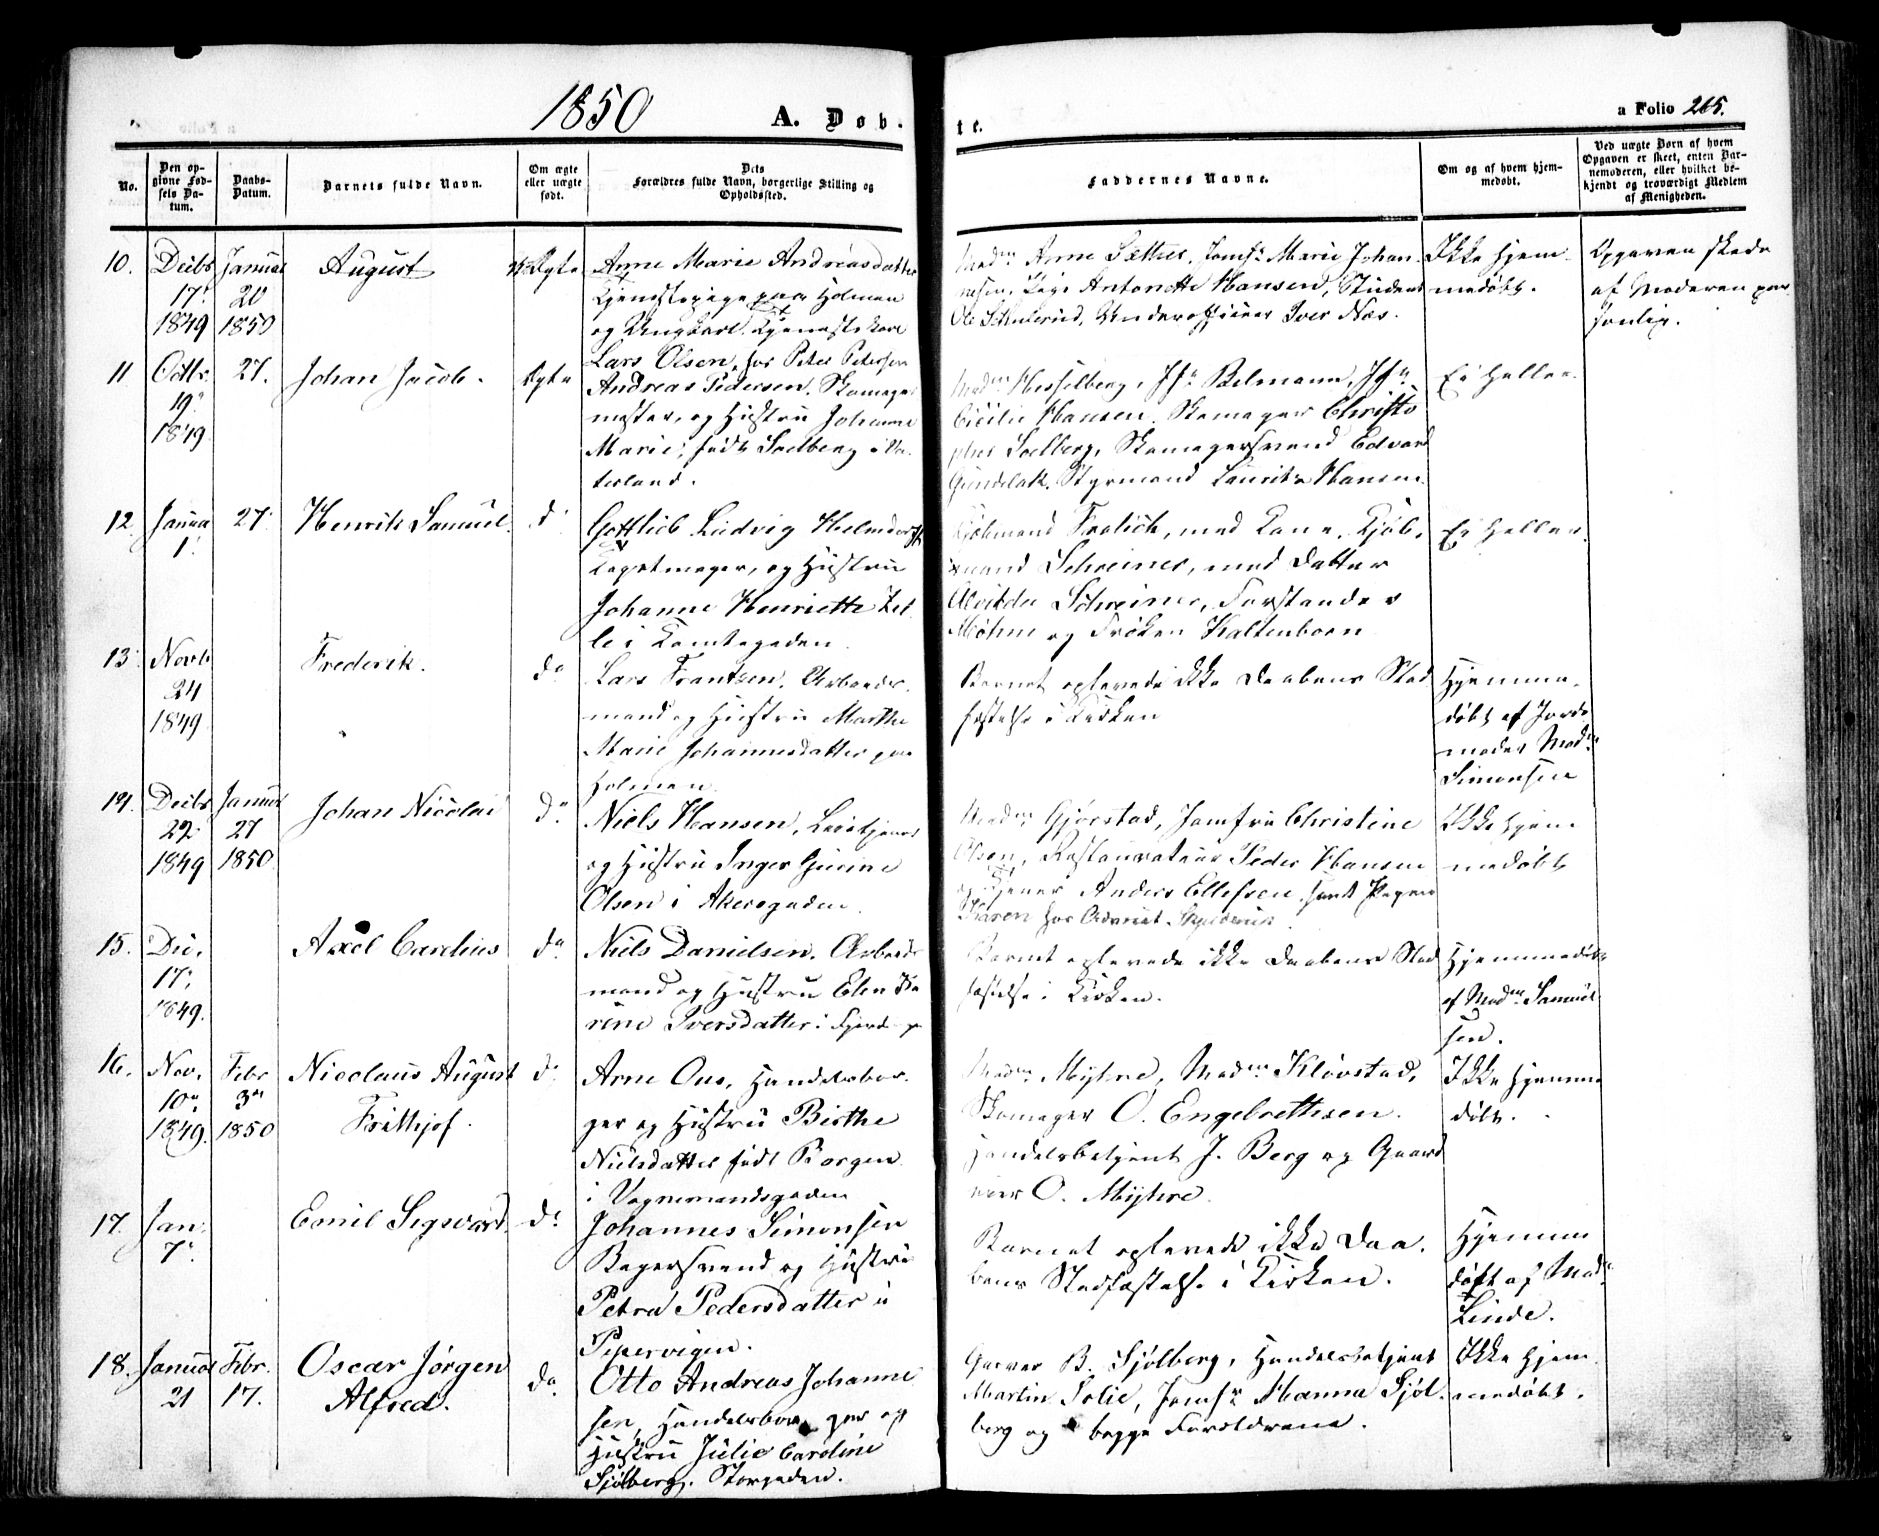 1850
A. Døb-
te.
a Folio 265.
No.
Den op-
givne Fød-
sels Da-
tum.
Daabs-
Datum.
Barnets fulde Navn.
Om ægte
eller uægte
født.
Dets
Forældres fulde Navn, borgerlige Stilling og
Opholdssted.
Faddernes Navne.
Om og af hvem hjem-
medøbt.
Ved uægte Børn af hvem
Opgaven er skeet, enten Bar-
nemoderen, eller hvilket be-
kjendt og troværdigt Medlem
af Menigheden.
10.
Decbr
17.
1849
Januar
20
1850
August
Uægte
Anne Marie Andreasdatter
Tjenestepige paa Holmen
og Ungkarl, Tjenestekarl
Lars Olsen, hos Peter Petersen
Madm Anne Sæther, Jomfr Marie Johan-
nesen, Pige Antonette Hansen, Student
Ole Schulerud, Underofficier Iver Næs.
Ikke hjem-
medøbt.
Opgaven skede
af Moderen per-
sonlig.
11
Octbr
19
1849
27.
Johan Jacob.
Ægte
Andreas Pedersen, Skomager-
mester, og Hustru Johanne
Marie, født Soelberg i Va-
terland.
Madm Hesselberg, Jfr Belmann, Jfr
Cicilie Hansen, Skomager Christo
pher Soelberg, Skomagersvend Edvard
Gundelak, Styrmand Lauritz Hansen.
Ei heller.
12.
Janua
1.
27.
Henrik Samuel.
do
Gottlieb Ludvig
Tapetmager, og Hustru
Johanne Henriette
le i Tomtegaden.
Kjøbmand Frølich, med Kone, Kjøb-
mand Schreiner, med Datter
Alvilde Schreiner, Forstander
Møhne og Frøken Kaltenborn
Ei heller.
13.
Novb
24
1849
Frederik.
do
Lars Frantzen, Arbeids-
mand og Hustru Marthe
Marie Johannesdatter paa
Holmen.
Barnet oplevede ikke Daabens Stad
fæstelse i Kirken
Hjemme-
døbt af Jorde
moder Madm
Simonsen
14.
Decbr
22
1849
Januar
27
1850
Johan Nicolai
do
Niels Hansen,
og Hustru Inger Gurine
Olsen i Akersgaden.
Madm Gjørstad, Jomfru Christine
Olsen, Restaurateur Peder Hansen
Tjener Anders Ellefsen, samt Pigen
Karen hos Advocat
Ikke hjem-
medøbt
15.
Dec.
17.
1849.
Axel Carelius
do
Niels Danielsen, Arbeids
mand og Hustru Elen Ka
rine Iversdatter i
Barnet oplevede ikke Daabens Stad
fæstelse i Kirken.
Hjemmedøbt
af Madm Samuel
sen.
16.
Nov.
10
1849.
Febr
3
1850
Nicolaus August
Frithjof.
do
Arne Ous, Handelsbor-
ger og Hustru Birthe
Nielsdatter født Borgen
i Vognmandsgaden
Madm Myhre, Madm Kløvstad,
Skomager O. Engebrethsen.
Handelsbetjent J. Berg og Gaard
eier O. Myhre.
Ikke hjemme
døbt.
17.
Jan.
7.
Emil Sigsvard.
do
Johannes Simonsen
Bagersvend og Hustru
Petra Pedersdatter i
Pipervigen.
Barnet oplevede ikke Daa-
bens Stadfæstelse i Kirken.
Hjemme
døbt af Madm
Linde.
18.
Januar
21
Febr.
17.
Oscar Jørgen
Alfred.
do.
Otto Andreas Johanne
sen, Handelsborger og
Hustru Julie Caroline
Sjølberg. Storgaden.
Garver B. Sjølberg, Handelsbetjent
Martin Solie, Jomfr Hanna Sjøl-
berg og begge Forældrene.
Ikke hjem-
medøbt.